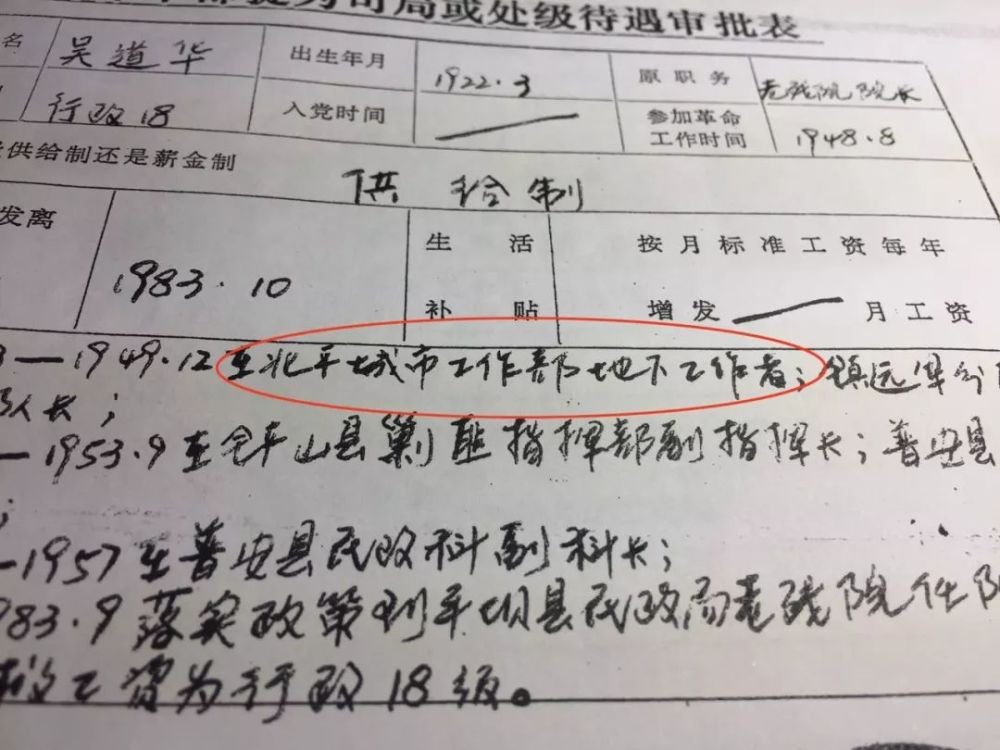 为司局或处级待遇审批表
名 吴道华 出生年月 1922.3 原职务 老残院院长
行政18 入党时间 参加革命工作时间 1948.8
供给制还是薪金制 供给制
发离 1983.10 生活补贴 按月标准工资每年增发 月工资
—1949.12在北平城市工作部地下工作者;镇远
队长;
—1953.9在 山县剿匪指挥部副指挥长;普安县
;
—1957在普安县民政科副科长;
983.9落实政策到平坝县民政局老残院任院
工资为行政18级。